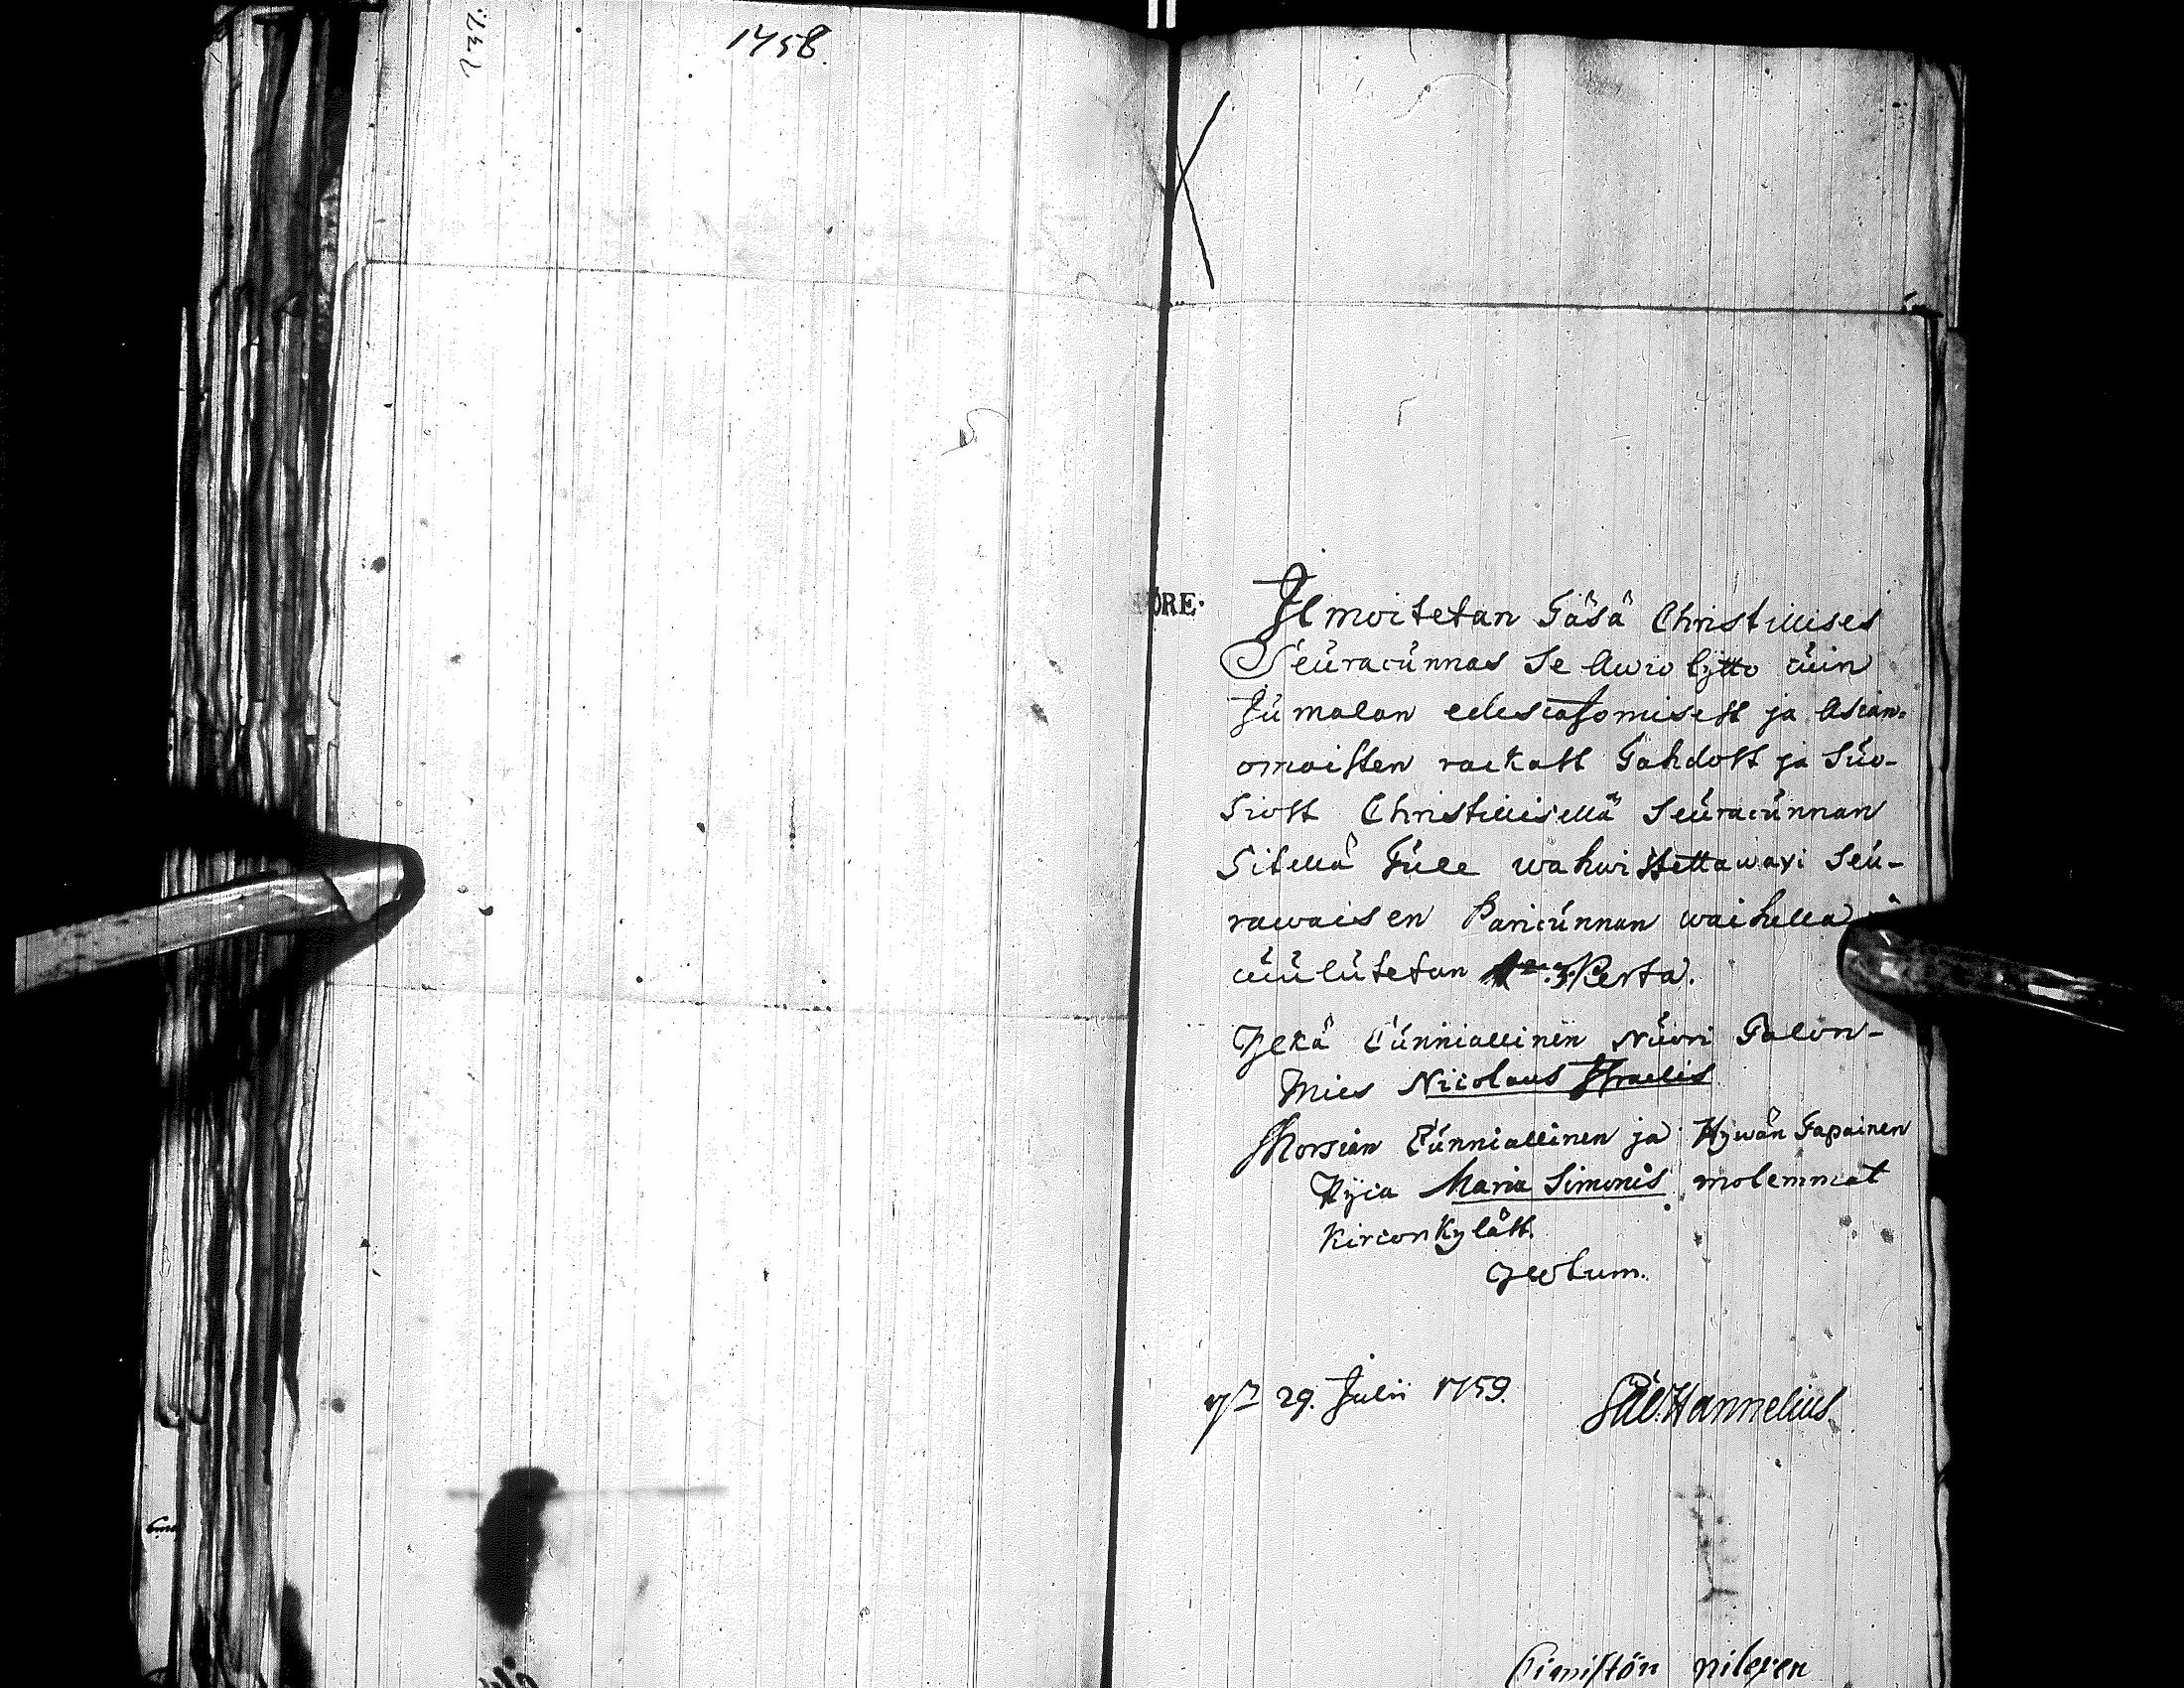 1758.
ÖRE.
Ilmoitetan Täsä Christillises
Seuracunnas Se Awio lijtto cuin
Jumalan edescatzomisest ja Asian-
omaisten rackast Tahdost ja Suo-
siost Christillisellä Seuracunnan
Sitellä Tule wahwistettawaxi Seu-
rawaisen Paricunnan waihella
cuulutetan 3. Kerta.
Yrkä Cunniallinen Nuori Talon-
Mies Nicolaus Israelis
Morsian Cunniallinen ja Hywän Tapainen
Pijca Maria Simonis molemmat
Kirconkyläst.
29. Julii 1759.
Hannelius